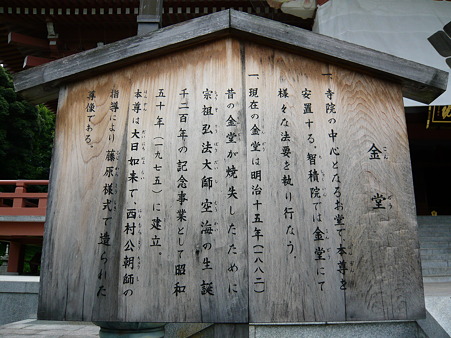 金堂
一、寺院の中心となるお堂で本尊を
安置する。智積院では金堂にて
様々な法要を執り行なう。
一、現在の金堂は明治十五年（一八八二）
昔の金堂が焼失したために
宗祖弘法大師空海の生誕
千二百年の記念事業として昭和
五十年（一九七五）に建立。
本尊は大日如来で、西村公朝師の
指導により藤原様式で造られた
尊像である。